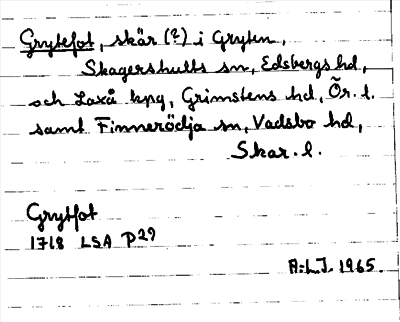 Grytefot, skär (?) i Gryten,
Skagershults sn, Edsbergs hd,
och Laxå kpg, Grimstens hd, Ör. l.
samt Finnerödja sn, Vadsbo hd,
Skar. l.
Grytfot
1718 LSA P29
A:L.J. 1965.